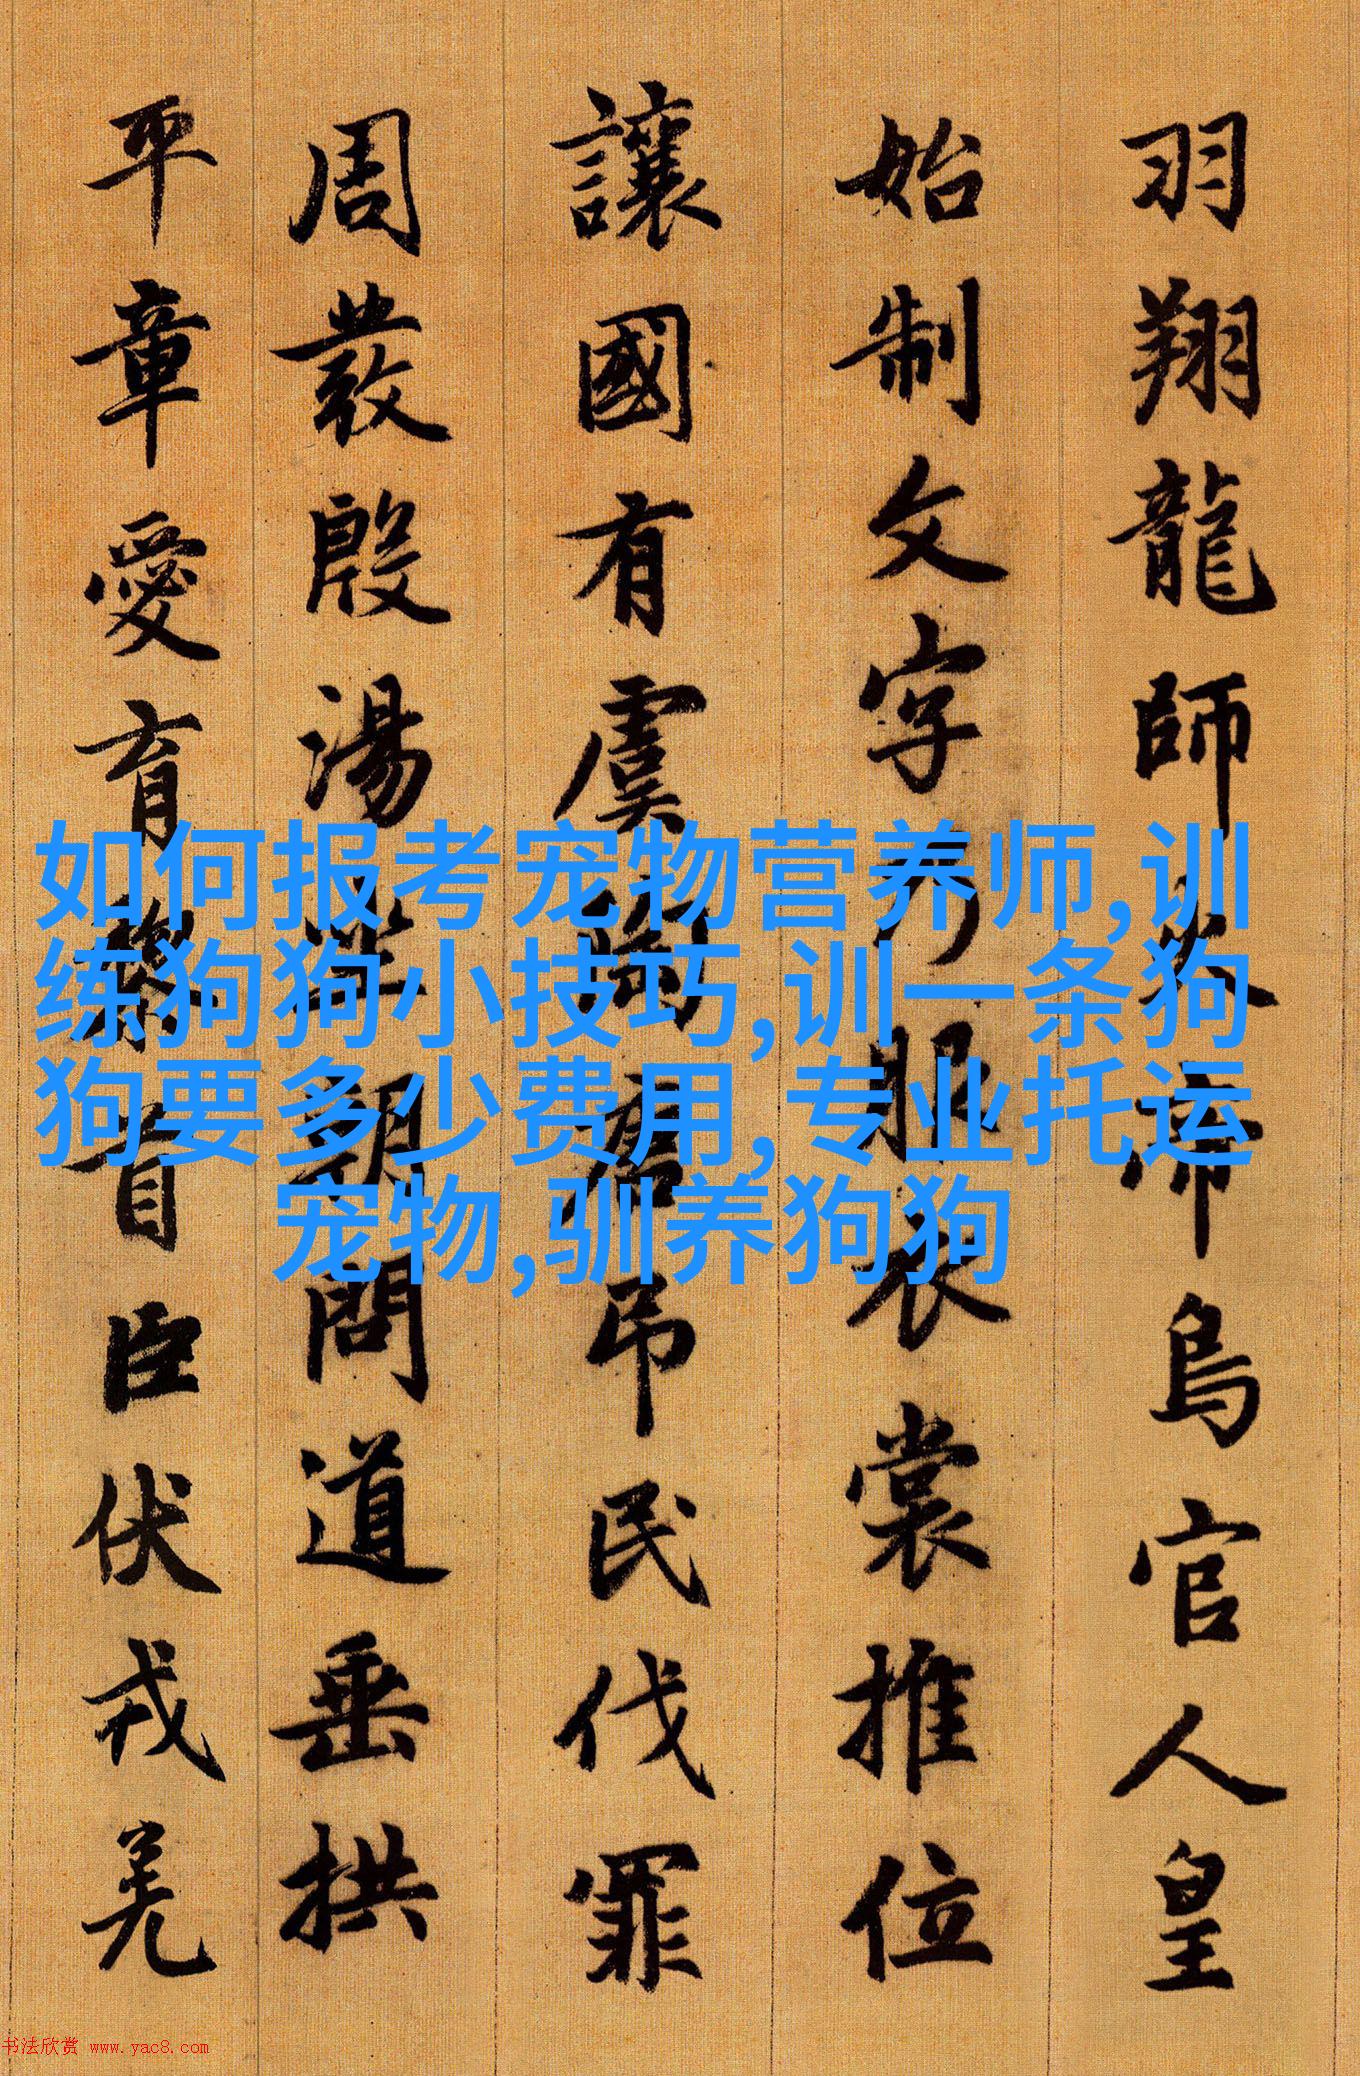 羽翔龍師火帝鳥官人皇
始制文字乃服衣裳推位
讓國有虞陶唐吊民伐罪
周發殷湯坐朝問道垂拱
平章愛育黎首臣伏戎羌
如何报考宠物营养师,训
练狗狗小技巧,训一条狗
狗要多少费用,专业托运
宠物,驯养狗狗
书法欣赏 www.yac8.com